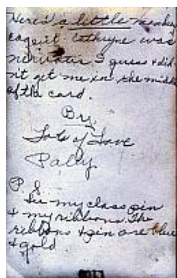 Here's a little monkey
cage it. Cathryne was
nervous I guess & did
n't get me in the middle
of the card.
By,
Lots of Love
Patsy.
P S
See my class pin
& my ribbons. The
ribbons & pin are blue
& gold